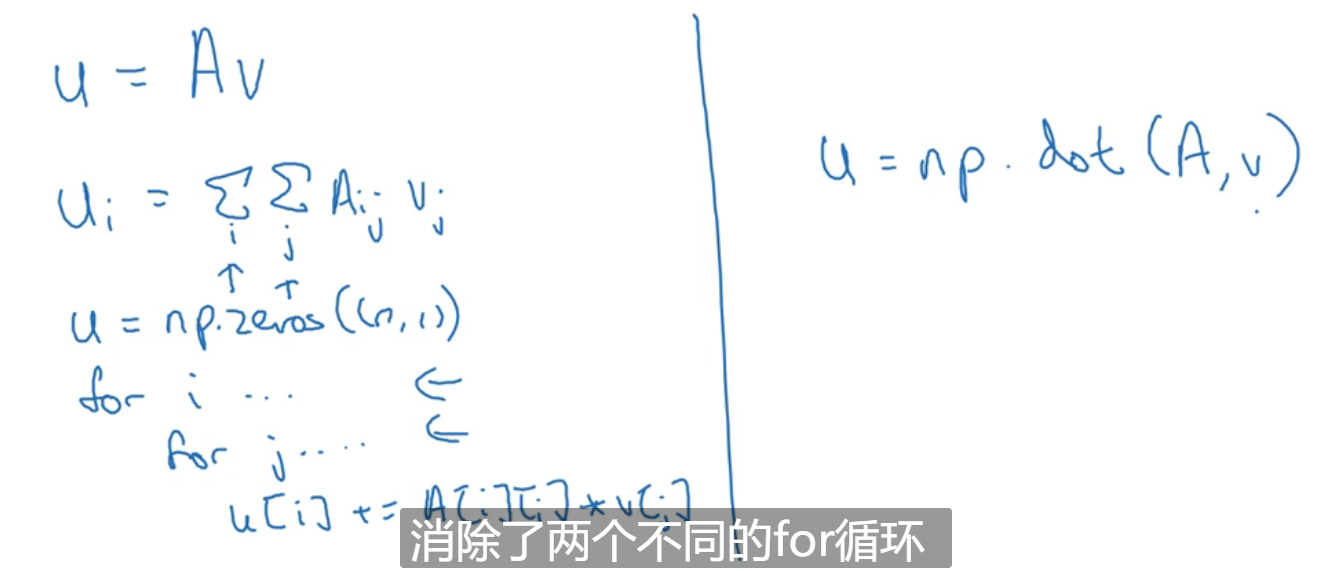 u = Av
u_i = Σ_i Σ_j A_ij v_j
↑ ↑
u = np.zeros((n,1))
for i ... ←
for j .... ←
u[i] += A[i][j] * v[j]
u = np.dot(A,v)
消除了两个不同的for循环